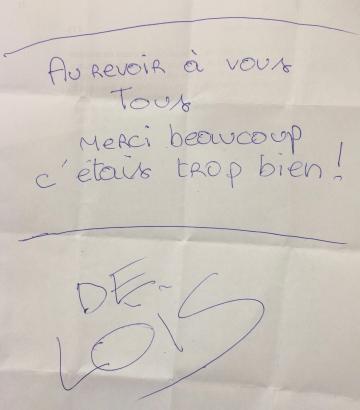 Au revoir à vous
Tous
Merci beaucoup
c'étais trop bien !
DE-
LOIS